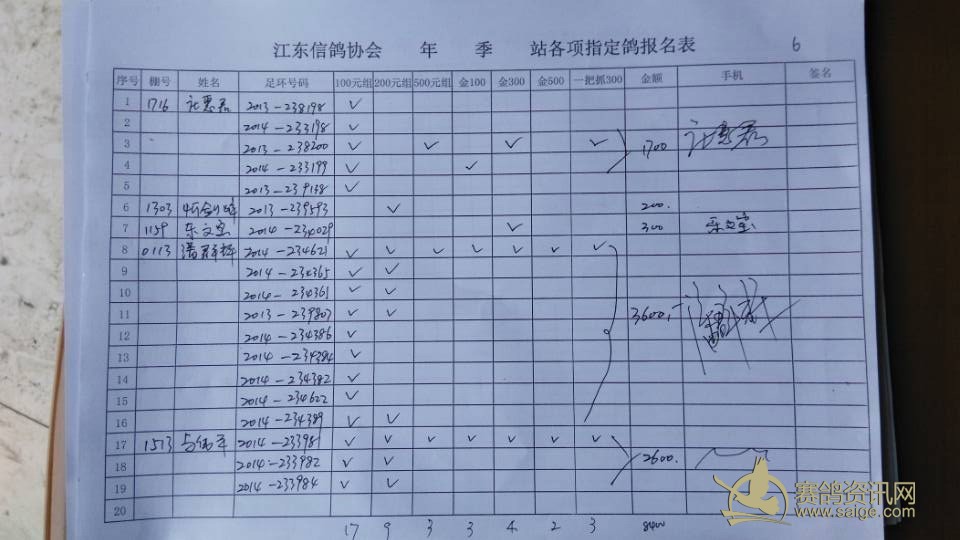 江东信鸽协会 年 季 站各项指定鸽报名表 6
序号 棚号 姓名 足环号码 100元组 200元组 500元组 金100 金300 金500 一把抓300 金额 手机 签名
1 1716 2013-238198 ✓
2 2014-233198 ✓
3 2013-238200 ✓ ✓ ✓ ✓ 1700
4 2014-233199 ✓ ✓
5 2013-239138 ✓
6 1303 2013-239593 ✓ 200.
7 1159 乐文宝 2014-234029 ✓ 300 乐文宝
8 0113 2014-234621 ✓ ✓ ✓ ✓ ✓ ✓ ✓
9 2014-234365 ✓ ✓
10 2014-234361 ✓ ✓
11 2013-239803 ✓ ✓ 3600,-
12 2014-234386 ✓
13 2014-234384 ✓
14 2014-234382 ✓
15 2014-234622 ✓
16 2014-234389 ✓ ✓
17 1513 2014-233981 ✓ ✓ ✓ ✓ ✓ ✓ ✓
18 2014-233982 ✓ ✓ 2600.
19 2014-233984 ✓ ✓
20
17 9 3 3 4 2 3 8400
赛鸽资讯网
www.saige.com